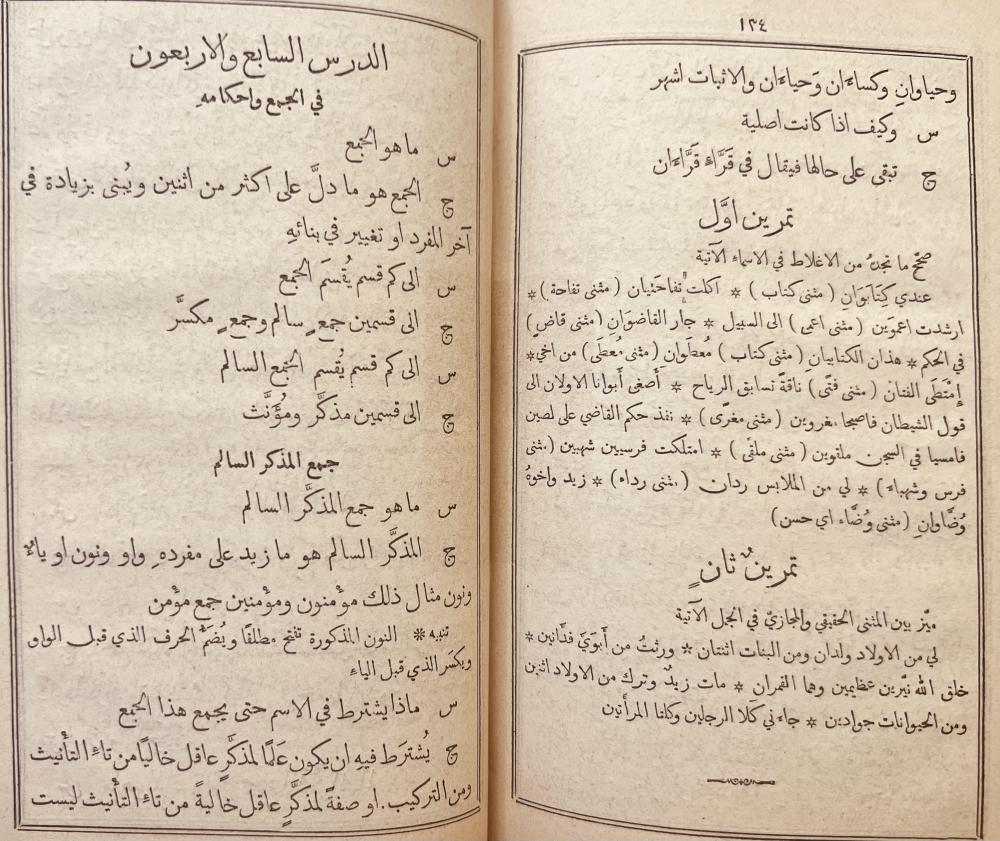 ١٣٤
وحياوانِ وكساءَان وَحياءَان والاثبات اشهر
س وكيف اذا كانت اصلية
ج تبقى على حالها فيقال في قَرَّاءَ قَرَّاءَان
تمرين اوَّل
صحّح ما تجدهُ من الاغلاط في الاسماء الآتية
عندي كِتَابَوَانِ ( مثنى كتاب ) * اكلت تفاحَتيان ( مثنى تفاحة ) *
ارشدت اعموَين ( مثنى اعمى ) الى السبيل * جار القاضوَانِ ( مثنى قاضٍ )
في الحكم * هذان الكتابيان ( مثنى كتاب ) مُعطَوان ( مثنى مُعطَى ) من اخي *
إِمتَطَى الفتانَ ( مثنى فتًى ) ناقةً تسابق الرياح * أَصغى أَبوانا الاولان الى
قول الشيطان فاصبحا مغروين ( مثنى مغرًى ) * نفذ حكم القاضي على لصين
فامسيا في السجن ملقوين ( مثنى ملقًى ) * امتلكت فرسيين شهبين ( مثنى
فرس وشهباء ) * لي من الملابس ردان ( مثنى رداء ) * زيد واخوهُ
وُضَّاوانِ ( مثنى وُضَّاء اي حسن )
تمرينٌ ثانٍ
ميّز بين المثنى الحقيقي والمجازيّ في الجمل الآتية
لي من الاولاد ولدان ومن البنات اثنتان * ورثتُ من أَبوَيَّ فدَّانين *
خلق الله نيّرين عظيمين وهما القمران * مات زيدٌ وترك من الاولاد اثنين
ومن الحيوانات جوادين * جاءَني كلا الرجلين وكلتا المرأَتين
الدرس السابع والاربعون
في الجمع واحكامهِ
س ما هو الجمع
ج الجمع هو ما دلَّ على اكثر من اثنين ويُبنى بزيادة في
آخر المفرد او تغيير في بنائهِ
س الى كم قسم يُقسَم الجمع
ج الى قسمين جمعٍ سالم وجمعٍ مكسَّر
س الى كم قسم يُقسم الجمع السالم
ج الى قسمين مذكَّر ومؤَنَّث
جمع المذكر السالم
س ما هو جمع المذكَّر السالم
ج المذكَّر السالم هو ما زيد على مفردهِ واو ونون او ياءٌ
ونون مثال ذلك مؤْمنون ومؤْمنين جمع مؤْمن
تنبيه * النون المذكورة تفتح مطلقًا ويُضَمُّ الحرف الذي قبل الواو
ويكسَر الذي قبل الياءِ
س ماذا يشترط في الاسم حتى يجمع هذا الجمع
ج يُشترَط فيهِ ان يكون عَلَمًا لمذكَّرٍ عاقل خاليًا من تاءِ التأْنيث
ومن التركيب . او صفةً لمذكَّرٍ عاقل خاليةً من تاءِ التأْنيث ليست